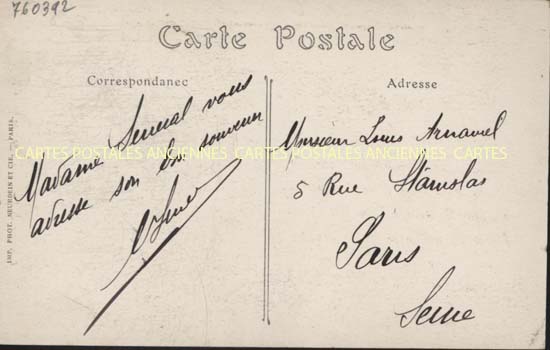 760392
Carte Postale
Correspondanec
Adresse
Madame vous
adresse son souvenir
Monsieur Louis
5 Rue Stanislas
Paris
Seine
CARTES POSTALES ANCIENNES CARTES POSTALES ANCIENNES CARTES
IMP. PHOT. NEURDEIN ET CIE. — PARIS.